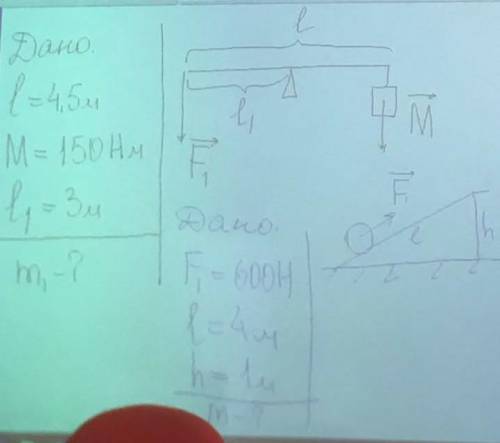 Дано.
l = 4,5м
M = 150Нм
l₁ = 3м
m₁ - ?
l
l₁
F₁
M
Дано.
F₁ = 600Н
l = 4м
h = 1м
m - ?
F₁
l
h